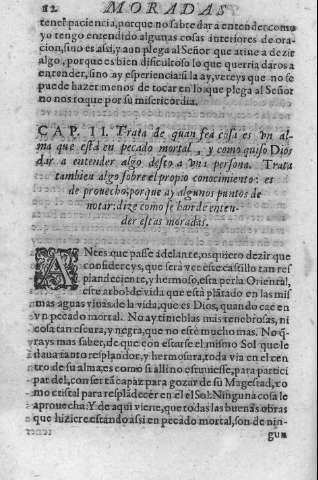 82 MORADAS
tener paciencia, porque no sabre dar a entender como
yo tengo entendido algunas cosas interiores de ora-
cion, sino es assi, y aun plega al Señor que atine a dezir
algo, porque es bien dificultoso lo que querria daros a
entender, sino ay esperiencia: si la ay, vereys que no se
puede hazer menos de tocar en lo que plega al Señor
no nos toque por su misericordia.
CAP. II. Trata de quan fea cosa es vn al-
ma que està en pecado mortal, y como quiso Dios
dar a entender algo desto a vna persona. Trata
tambien algo sobre el propio conocimiento: es
de prouecho, porque ay algunos puntos de
notar: dize como se han de enten-
der estas moradas.
ANtes que passe adelante, os quiero dezir que
considereys, que serà ver este castillo tan res
plandeciente, y hermoso, esta perla Oriental,
este arbol de vida que està plãtado en las mis
mas aguas viuas de la vida, que es Dios, quando cae en
vn pecado mortal. No ay tinieblas mas tenebrosas, ni
cosa tan escura, y negra, que no este mucho mas. No q̃-
rays mas saber, de que con estarse el mismo Sol que le
daua tanto resplandor, y hermosura, toda via en el cen-
tro de su alma, es como si alli no estuuiesse, para partici
par del, con ser tã capaz para gozar de su Magestad, co
mo cristal para resplãdecer en el el Sol. Ninguna cosa le
aprouecha: Y de aqui viene, que todas las buenas obras
que hiziere estando assi en pecado mortal, son de nin-
gun